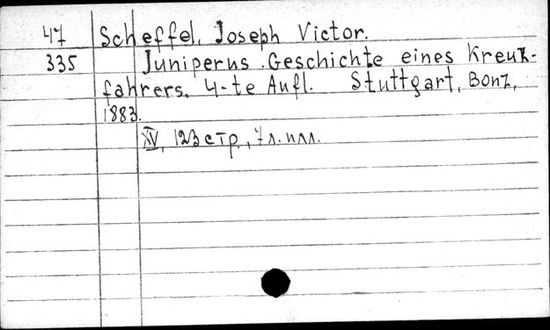 47 Scheffel, Joseph Victor.
335 Juniperus. Geschichte eines Kreuz-
fahrers. 4-te Aufl. Stuttgart, Bonz,
1883.
XV, 123 стр., 7 л. илл.